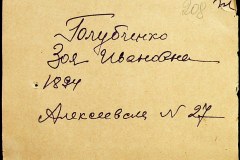 208
Голубченко
Зоя Ивановна
1894
Алексеевская N 27